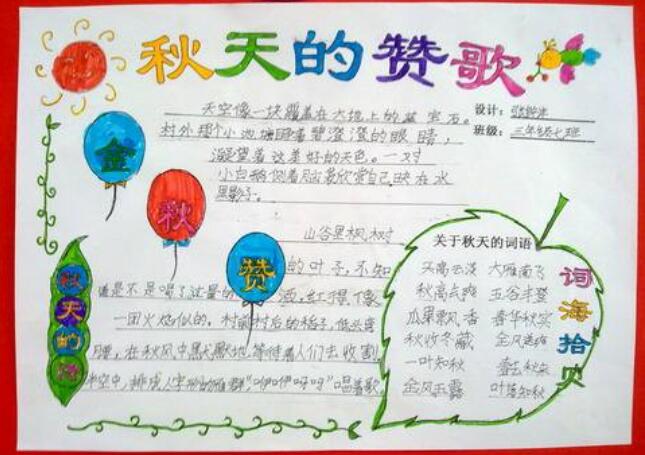 秋天的赞歌
天空像一块覆盖在大地上的蓝宝石。
设计：
村外那个小池塘睁着碧澄澄的眼睛，
班级：三年级七班
凝望着这美好的天色。一对
小白鹅侧着脑袋欣赏自己映在水
里影子。
金
秋
赞
山谷里枫树
的叶子，不知
道是不是喝了过量的酒，红得像
一团火焰似的。村前村后的稻子，低头弯
腰，在秋风中默默地等待着人们去收割
半空中，排成人字形的雁群，"咿咿呀呀"唱着歌
秋天的
关于秋天的词语
词海拾贝
天高云淡 大雁南飞
秋高气爽 五谷丰登
瓜果飘香 春华秋实
秋收冬藏 金风送
一叶知秋 春去秋来
金风玉露 叶落知秋